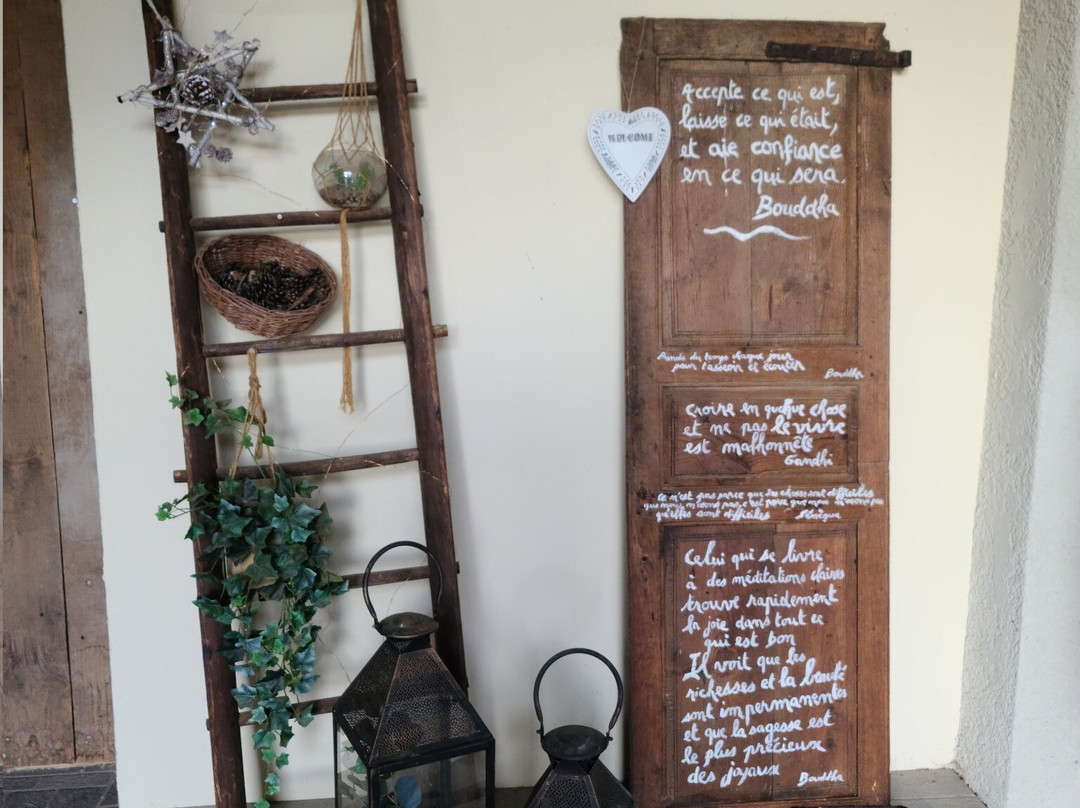 WELCOME
Accepte ce qui est,
laisse ce qui était,
et aie confiance
en ce qui sera.
Bouddha
Prends du temps chaque jour
pour t'asseoir et écouter
Bouddha
Croire en quelque chose
et ne pas le vivre
est malhonnête
Gandhi
Ce n'est pas parce que les choses sont difficiles
que nous n'osons pas, c'est parce que nous n'osons pas
qu'elles sont difficiles Sénèque
Celui qui se livre
à des méditations claires
trouve rapidement
la joie dans tout ce
qui est bon
Il voit que les
richesses et la beauté
sont impermanentes
et que la sagesse est
le plus précieux
des joyaux Bouddha